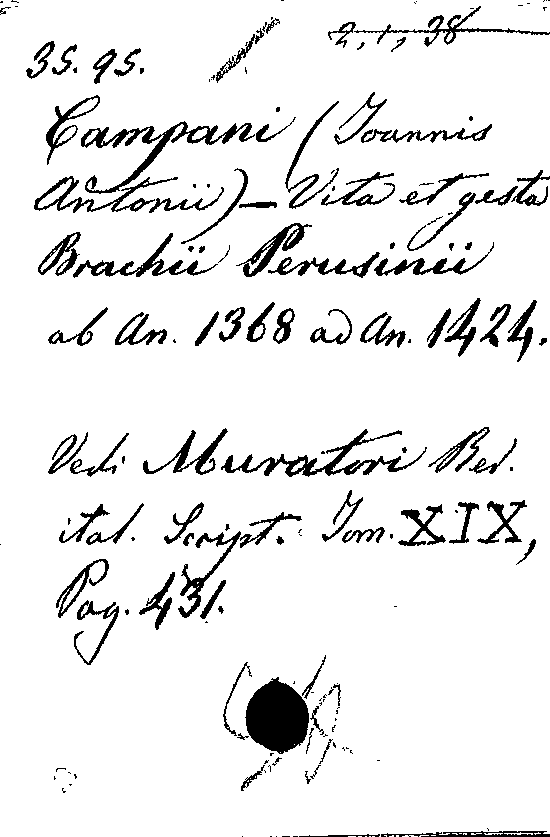 2, 1, 38
35. 95.
Campani (Joannis
Antonii) — Vita et gesta
Brachii Perusinii
ab An. 1368 ad An. 1424.
Vedi Muratori Rer.
ital. Script. Tom. XIX,
Pag. 431.